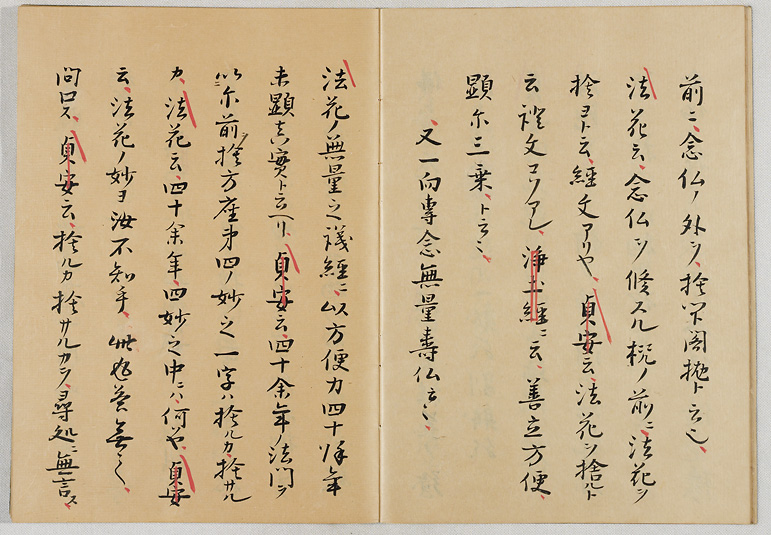 前ニ、念仏ノ外ヲ、捨閉閣抛ト云々、
法花云、念仏ヲ修スル機ノ前ニ、法花ヲ
捨ヨト云、経文アリヤ、貞安云、法花ヲ捨ルト
云證文コソアレ、浄土経ニ云、善立方便、
顕示三乗、ト云々、
又一向専念無量寿仏云々、
法花ノ無量之義経ニ、以方便力四十余年
未顕真実ト云ヘリ、貞安云、四十余年ノ法門ヲ
以尓前捨方座第四ノ妙之一字ハ捨ルカ、捨サル
カ、法花云、四十余年、四妙之中ニハ、何ソヤ、貞安
云、法花ノ妙ヨ汝不知乎、此返答無之、
閉口ス、貞安云、捨ルカ捨サルカヲ、尋処ニ無言ス、